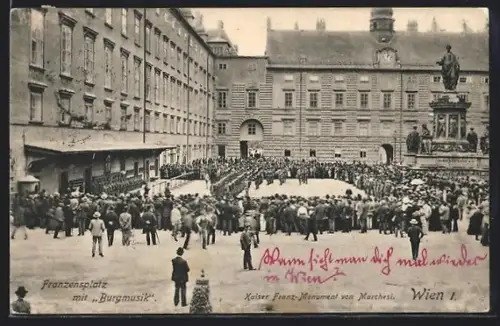 Wann sieht man Dich mal wieder
in Wien?
Franzensplatz
mit „Burgmusik“.
Kaiser Franz-Monument von Marchesi.
Wien I.